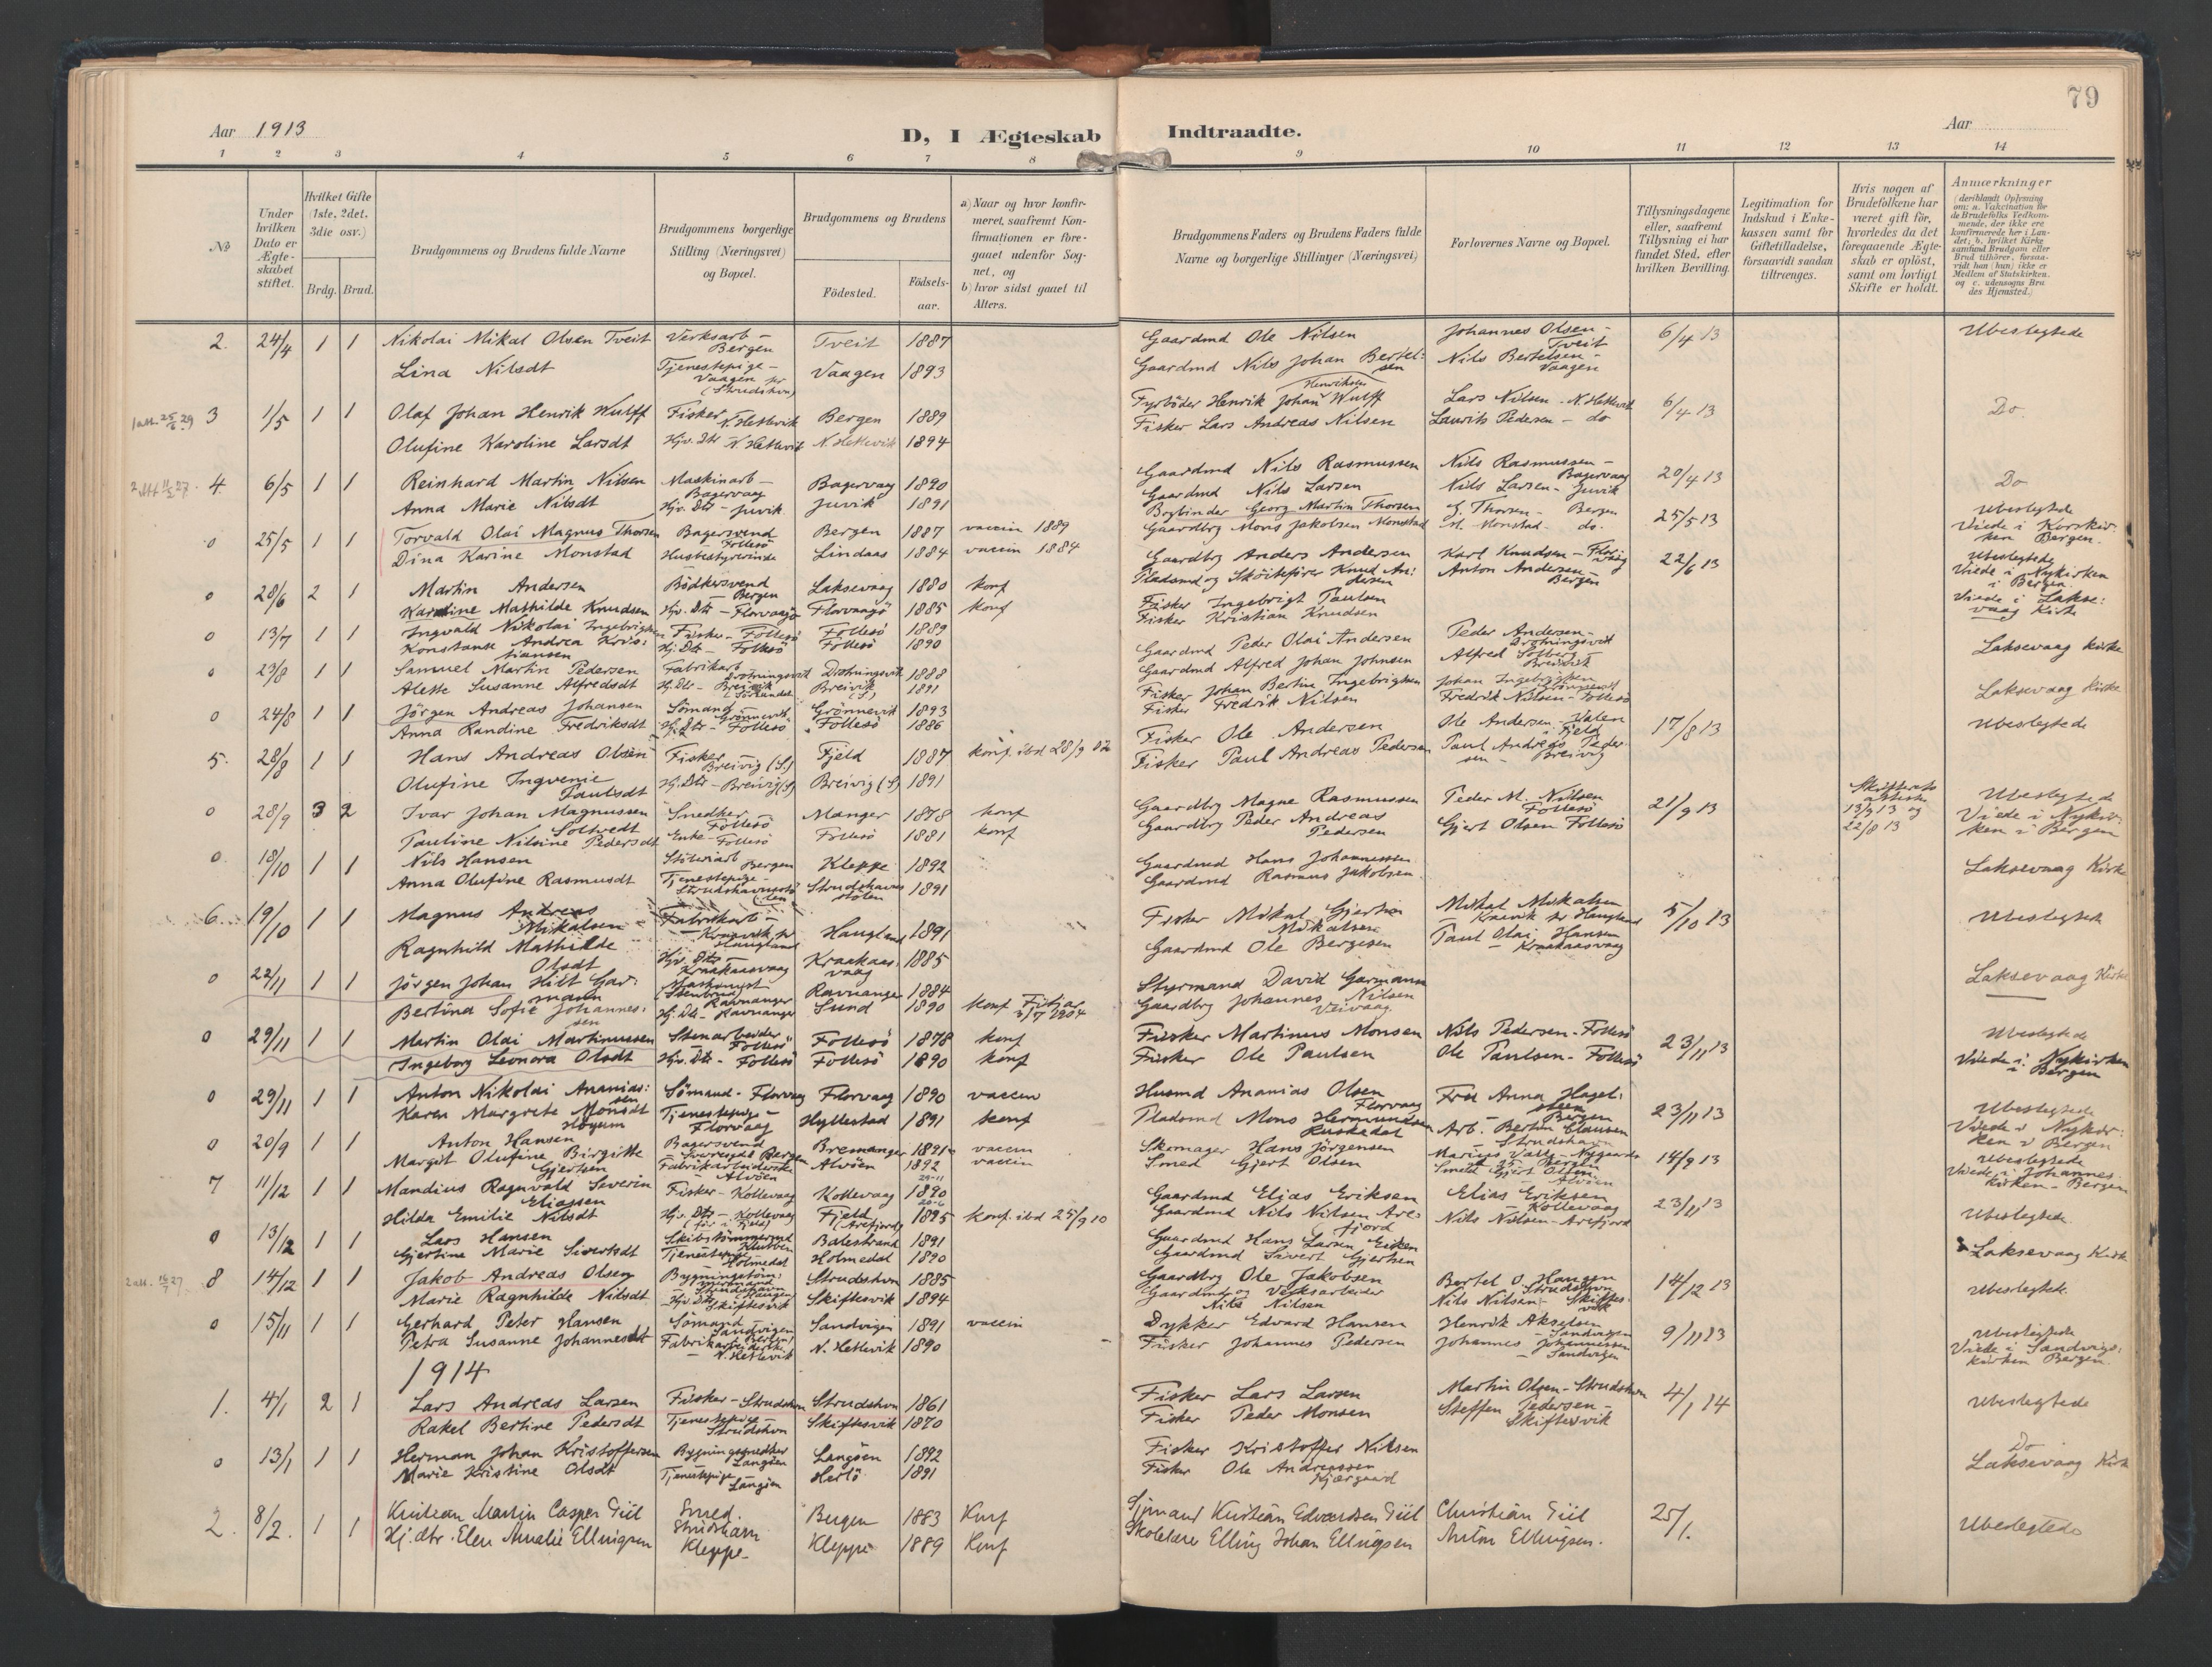 79
Aar 1913
D, I Ægteskab Indtraadte.
Aar
1 2 3 4 5 6 7 8 9 10 11 12 13 14
No
Under hvilken Dato er Ægteskabet stiftet.
Hvilket Gifte (1ste, 2det, 3die osv.)
Brdg. Brud.
Brudgommens og Brudens fulde Navne
Brudgommens borgerlige Stilling (Næringsvei) og Bopæl.
Brudgommens og Brudens
Födested. Födselsaar.
a) Naar og hvor konfirmeret, saafremt Konfirmationen er foregaaet udenfor Sognet, og
b) hvor sidst gaaet til Alters.
Brudgommens Faders og Brudens Faders fulde Navne og borgerlige Stillinger (Næringsvei)
Forlovernes Navne og Bopæl.
Tillysningsdagene eller, saafremt Tillysning ei har fundet Sted, efter hvilken Bevilling.
Legitimation for Indskud i Enkekassen samt for Giftetilladelse, forsaavidt saadan tiltrænges.
Hvis nogen af Brudefolkene har været gift för, hvorledes da det foregaaende Ægteskab er oplöst, samt om lovligt Skifte er holdt.
Anmærkninger (deriblandt Oplysning om: a. Vakcination for de Brudefolks Vedkommende, der ikke ere konfirmerede her i Landet; b. hvilket Kirkesamfund Brudgom eller Brud tilhörer, forsaavidt han (hun) ikke er Medlem af Statskirken. og c. udensogns Brudes Hjemsted.)
2. 24/4 1 1 Nikolai Mikal Olsen Tveit Verksarb – Bergen Tveit 1887 Gaardmd Ole Nilsen Johannes Olsen – Tveit 6/4 13 Ubeslegtede
Lina Nilsdt Tjenestepige – Vaagen pr (Strudshvn) Vaagen 1893 Gaardmd Nils Johan Bertelsen Nils Bertelsen – Vaagen
3 1/5 1 1 Olaf Johan Henrik Wulff Fisker N. Hetlevik Bergen 1889 Fyrböder Henrik Johan Henriksen Wulff Lars Nilsen – N. Hetlevik 6/4 13 Do.
Olufine Karoline Larsdt Hjv. Dtr N. Hetlevik N. Hetlevik 1894 Fisker Lars Andreas Nilsen Laurits Pedersen – do
4. 6/5 1 1 Reinhard Martin Nilsen Maskinarb – Bagervaag Bagervaag 1890 Gaardmd Nils Rasmussen Nils Rasmussen – Bagervaag 20/4 13 Do
Anna Marie Nilsdt Hjv. Dtr – Juvik Juvik 1891 Gaardmd Nils Larsen Nils Larsen – Juvik
0 25/5 1 1 Torvald Olai Magnus Thorsen Bagersvend Follesö Bergen 1887 vaccin 1889 Bogbinder Georg Martin Thorsen G. Thorsen – Bergen 25/5 13 Ubeslegtede Viede i Korskirken Bergen.
Dina Karine Monstad Husbestyrerinde Lindaas 1884 vaccin 1884 Gaardbrg Mons Jakobsen Monstad M. Monstad – do.
0 28/6 2 1 Martin Andersen Bödkersvend – Bergen Laksevaag 1880 konf Gaardbrg Anders Andersen Karl Knudsen – Florvaag 22/6 13 Ubeslegtede Viede i Nykirken i Bergen.
Karoline Mathilde Knudsen Hjv. Dtr – Florvaagö Florvaagö 1885 konf Pladsmd og Sköitefører Knud Andersen Anton Andersen – Bergen
0 13/7 1 1 Ingvald Nikolai Ingebrigtsen Fisker – Follesö Follesö 1889 Fisker Ingebrigt Paulsen Viede i Laksevaag Kirke
Konstanse Andrea Kristiansen Hj. Dtr – Follesö Follesö 1890 Fisker Kristian Knudsen
0 23/8 1 1 Samuel Martin Pedersen Fabrikarb Drotningsvik Drotningsvik 1888 Gaardmd Peder Olai Andersen Peder Andersen – Drotningsvik Laksevaag Kirke
Alette Susanne Alfredsdt Hj. Dtr – Breivik Breivik (S) 1891 Gaardmd Alfred Johan Johnsen Alfred Solberg – Breivik
0 24/8 1 1 Jörgen Andreas Johansen Sömand Grönnevik Grönnevik 1893 Fisker Johan Bertin Ingebrigtsen Johan Ingebrigtsen Grönnevik Laksevaag Kirke
Anna Randine Fredriksdt Hj. Dtr – Follesö Follesö 1886 Fisker Fredrik Nilsen Fredrik Nilsen – Follesö
5. 28/8 1 1 Hans Andreas Olsen Fisker Breivig (S.) Fjeld 1887 konf. ibd 28/9 02 Fisker Ole Andersen Ole Andersen – Valen i Fjeld 17/8 13 Ubeslegtede
Olufine Ingvenie Paulsdt Hj. Dtr – Breivig (S) Breivig (S) 1891 Fisker Paul Andreas Pedersen Paul Andreas Pedersen – Breivig
0 28/9 3 2 Ivar Johan Magnussen Soltvedt Snedker Follesö Manger 1878 konf Gaardbrg Magne Rasmussen Peder M. Nilsen Follesö 21/9 13 Skifteretsattester 13/9 13 og 22/8 13 Ubeslegtede Viede i Nykirken i Bergen
Pauline Nilsine Pedersdt Enke – Follesö Follesö 1881 konf Gaardbrg Peder Andreas Pedersen Gjert Olsen Follesö
0. 18/10 1 1 Nils Hansen Bergen Kleppe 1892 Gaardmd Hans Johannessen Laksevaag Kirke
Anna Olufine Rasmusdt Tjenestepige – Strudshavnstölen Strudshavnstölen 1891 Gaardmd Rasmus Jakobsen
6. 19/10 1 1 Magnus Andreas Mikalsen Fabrikarb – Kraavik pr Haugland Haugland 1891 Fisker Mikal Gjertsen Mikalsen Mikal Mikalsen – Kraavik pr Haugland 5/10 13 Ubeslegtede
Ragnhild Mathilde Olsdt Hjv. Dtr – Kraakaasvaag Kraakaasvaag 1885 Gaardmd Ole Bergesen Paul Olai Hansen – Kraakaasvaag
0 22/11 1 1 Jörgen Johan Hilt Garmann Maskinist Ravnanger Ravnanger 1884 Styrmand David Garmann Laksevaag Kirke
Bertina Sofie Johannessen Hj. Dtr – Ravnanger Sund 1890 konf Fitjar 3/7 1904 Gaardbrg Johannes Nilsen Veivaag
0 29/11 1 1 Martin Olai Martinussen Stenarbeider Follesö Follesö 1878 konf Fisker Martinus Monsen Nils Pedersen – Follesö 23/11 13 Ubeslegtede Viede i Nykirken i Bergen
Ingeborg Leonora Olsdt Hjv. Dtr – Follesö Follesö 1890 konf Fisker Ole Paulsen Ole Paulsen – Follesö
0 29/11 1 1 Anton Nikolai Ananiassen Sömand – Florvaag Florvaag 1890 vaccin Husmd Ananias Olsen Florvaag Fru Anna Hagelsteen Bergen 23/11 13 Ubeslegtede Viede i Nykirken i Bergen
Karen Margrete Monsdt Tjenestepige – Florvaag Hyllestad 1891 konf Pladsmd Mons Hermundsen Arb. Bertin Clausen – Strudshavn
0 20/9 1 1 Anton Hansen Bagersvend Bergen Bremanger 1891 vaccin Skomager Hans Jörgensen Bergen 14/9 13 Ubeslegtede Viede i Johanneskirken – Bergen
Margit Olufine Birgitte Gjertsen Fabrikarbeiderske Alvöen Alvöen 1892 vaccin Smed Gjert Olsen Smed Gjert Olsen – Alvöen
7 11/12 1 1 Mandius Ragnvald Severin Eliassen Fisker – Kollevaag Kollevaag 1890 Gaardmd Elias Eriksen Elias Eriksen – Kollevaag 23/11 13
Hilda Emilie Nilsdt Hjv. Dtr – Kollevaag (för i Fjeld) Fjeld (Arefjord) 1895 konf. ibd 25/9 10 Gaardmd Nils Nilsen Arefjord Nils Nilsen – Arefjord Ubeslegtede.
0 13/12 1 1 Lars Hansen Skibstömmermd Balestrand 1891 Gaardmd Hans Larsen Eiken Laksevaag Kirke
Gjertine Marie Sivertsdt Tjenestepige – Holmedal Holmedal 1890 Gaardmd Sivert Gjertsen
8 14/12 1 1 Jakob Andreas Olsen Strudshvn 1885 Gaardbrg Ole Jakobsen Bertel O. Haugen Strudshvn 14/12 13 Ubeslegtede
Marie Ragnhilde Nilsdt Hjv. Dtr Skiftesvik Skiftesvik 1894 Gaardmd og Verksarbeider Nils Nilsen Nils Nilsen – Skiftesvik
0 15/11 1 1 Gerhard Peter Hansen Sömand – Sandvigen Sandvigen 1891 vaccin Dykker Edvard Hansen Henrik Akselsen – Sandvigen 9/11 13 Ubeslegtede Viede i Sandvigskirken Bergen.
Petra Susanne Johannesdt Fabrikarbeiderske – N. Hetlevik N. Hetlevik 1890 Fisker Johannes Pedersen Johannes Johannessen – Sandvigen
1914
1. 4/1 2 1 Lars Andreas Larsen Fisker – Strudshvn Strudshvn 1861 Fisker Lars Larsen Martin Olsen – Strudshvn 4/1 14 Ubeslegtede
Rakel Bertine Pedersdt Tjenestepige – Strudshvn Skiftesvik 1870 Fisker Peder Monsen Steffen Pedersen – Skiftesvik
0 13/1 1 1 Herman Johan Kristoffersen Bygningssnedker Langöen Langöen 1892 Fisker Kristoffer Nilsen Do Laksevaag Kirke
Marie Kristine Olsdt Tjenestepige Langöen Herlö 1891 Fisker Ole Andreassen Kjærgaard
2. 8/2. 1 1 Kristian Martin Casper Giil Smed. Strudshavn Bergen 1883 Konf Sjömand Kristian Edvardsen Giil Christian Giil 25/1. Ubeslegtede
Hj. dtr. Elen Amalie Ellingsen Kleppe – Kleppe 1889 Konf Skolelærer Elling Johan Ellingsen Anton Ellingsen.